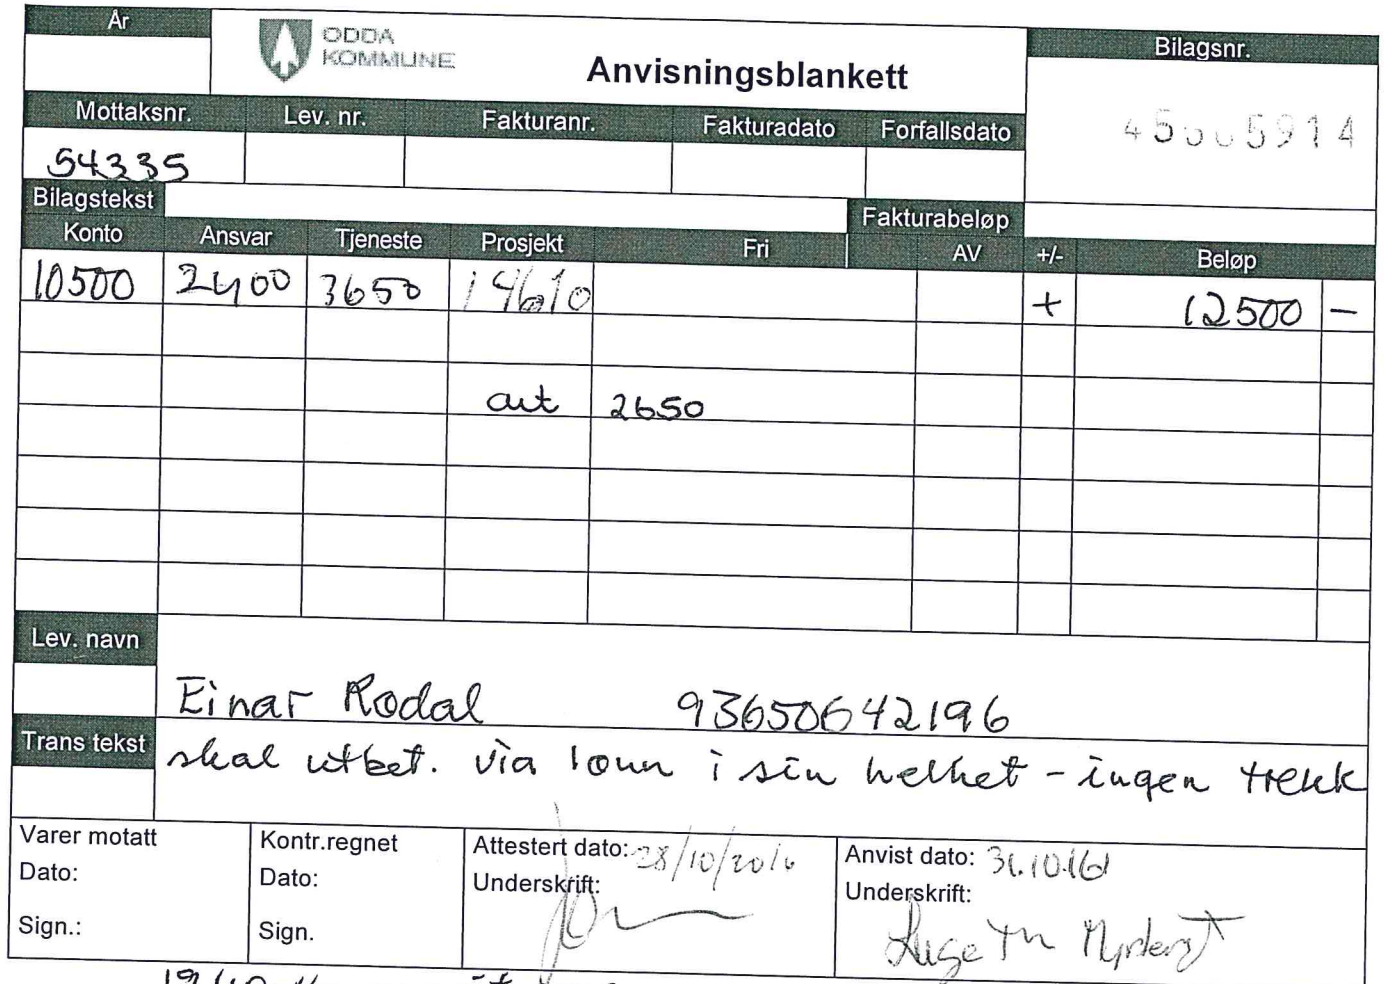 År
ODDA
KOMMUNE
Anvisningsblankett
Bilagsnr.
Mottaksnr. Lev. nr. Fakturanr. Fakturadato Forfallsdato
45005914
54335
Bilagstekst Fakturabeløp
Konto Ansvar Tjeneste Prosjekt Fri AV +/- Beløp
10500 2400 3650 14610 + 12500 -
art 2650
Lev. navn
Einar Rodal 93650642196
Trans tekst
skal utbet. via lønn i sin helhet - ingen trekk
Varer motatt Kontr.regnet Attestert dato: 28/10/2016 Anvist dato: 31.10.16
Dato: Dato: Underskrift: Underskrift:
Sign.: Sign.